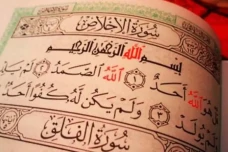 سُورَةُ الإِخْلَاصِ
بِسْمِ اللَّهِ الرَّحْمَٰنِ الرَّحِيمِ
هُوَ اللَّهُ أَحَدٌ ۝١ اللَّهُ الصَّمَدُ ۝٢ لَمْ
يُولَدْ ۝٣ وَلَمْ يَكُن لَّهُ كُفُوًا أَحَدٌ
سُورَةُ الفَلَقِ